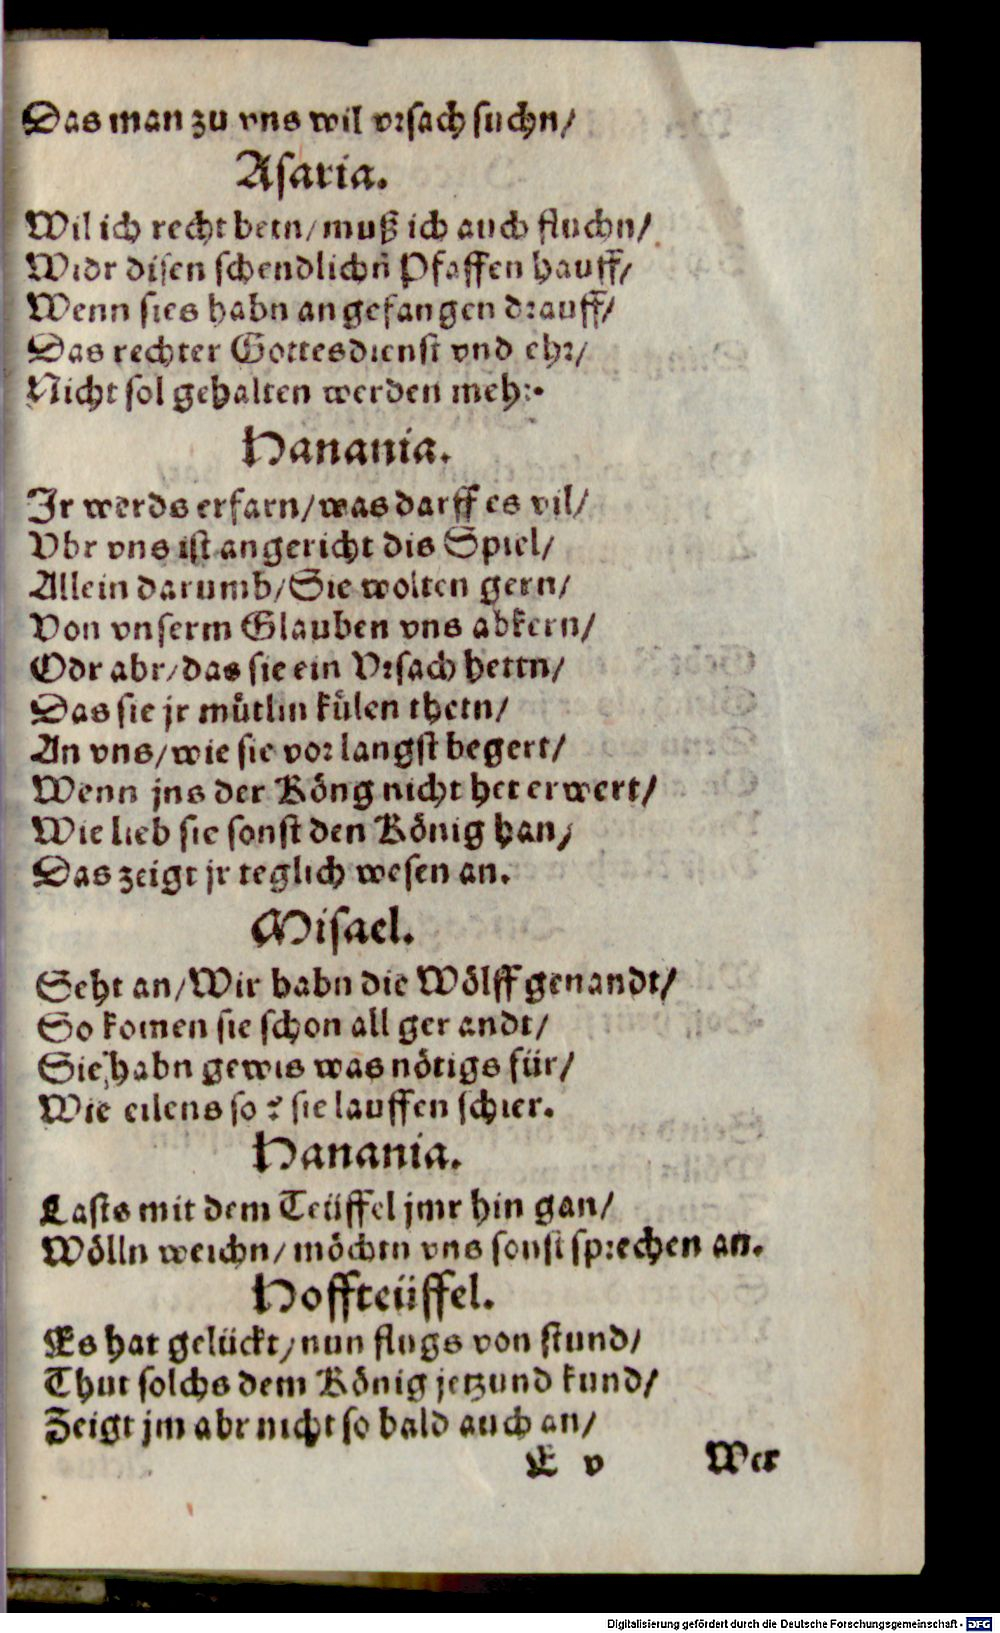 Das man zu vns wil vrsach suchn/
Asaria.
Wil ich recht betn/muß ich auch fluchn/
Widr disen schendlichñ Pfaffen hauff/
Wenn sies habn angefangen drauff/
Das rechter Gottesdienst vnd ehr/
Nicht sol gehalten werden mehr.
Hanania.
Jr werds erfarn/was darff es vil/
Vbr vns ist angericht dis Spiel/
Allein darumb/Sie wolten gern/
Von vnserm Glauben vns abkern/
Odr abr/das sie ein Vrsach hettn/
Das sie jr mütlin külen thetn/
An vns/wie sie vor langst begert/
Wenn jns der Köng nicht het erwert/
Wie lieb sie sonst den König han/
Das zeigt jr teglich wesen an.
Misael.
Seht an/Wir habn die Wölff genandt/
So komen sie schon all gerandt/
Sie habn gewis was nötigs für/
Wie eilens so? sie lauffen schier.
Hanania.
Lasts mit dem Teüffel jmr hin gan/
Wölln weichn/möchtn vns sonst sprechen an.
Hoffteüffel.
Es hat gelückt/nun flugs von stund/
Thut solchs dem König jetzund kund/
Zeigt jm abr nicht so bald auch an/
E v Wer
Digitalisierung gefördert durch die Deutsche Forschungsgemeinschaft - DFG